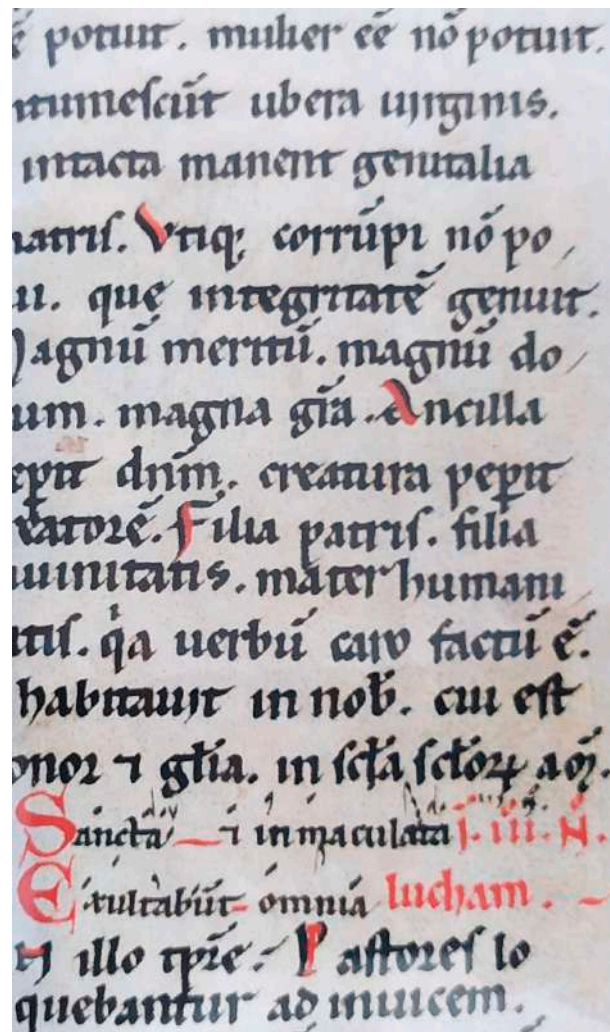 ē potuit. mulier eē nō potuit.
ntumeſcūt ubera uirginis.
intacta manent genitalia
matriſ. Vtiq; corrūpi nō po
ui. quę integritatē genuit.
Magnū meritū. magnū do
um. magna gr̄a. Ancilla
ep̄it dn̄m. creatura pep̄it
reatorē. Filia patriſ. filia
iuinitatis. mater humani
tatiſ. qͥa uerbū caro factū ē.
habitauit in nob̄. cui eſt
onor ⁊ gl̄ia. in ſcl̄a ſcl̄oꝝ am̄.
Sancta ⁊ inmaculata l. iii. N.
Exultabūt omnia lucham.
In illo tp̄re. Paſtores lo
quebantur ad inuicem.